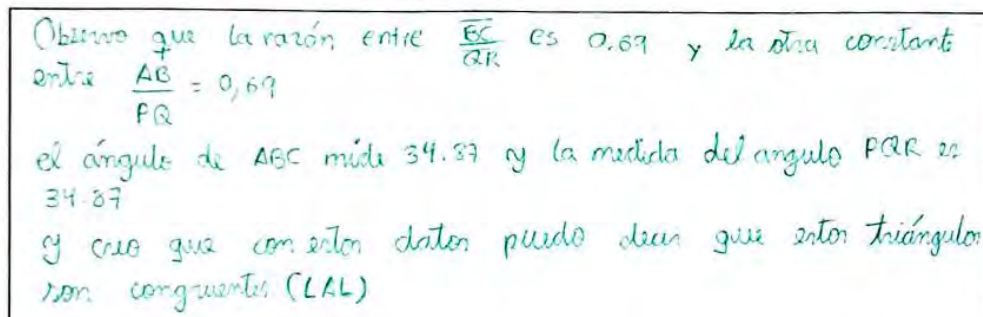 Observo que la razón entre BC/QR es 0.69 y la otra constante
entre AB/PQ = 0,69
el ángulo de ABC mide 34.87 y la medida del angulo PQR es
34.87
y creo que con estos datos puedo decir que estos triángulos
son congruentes (LAL)